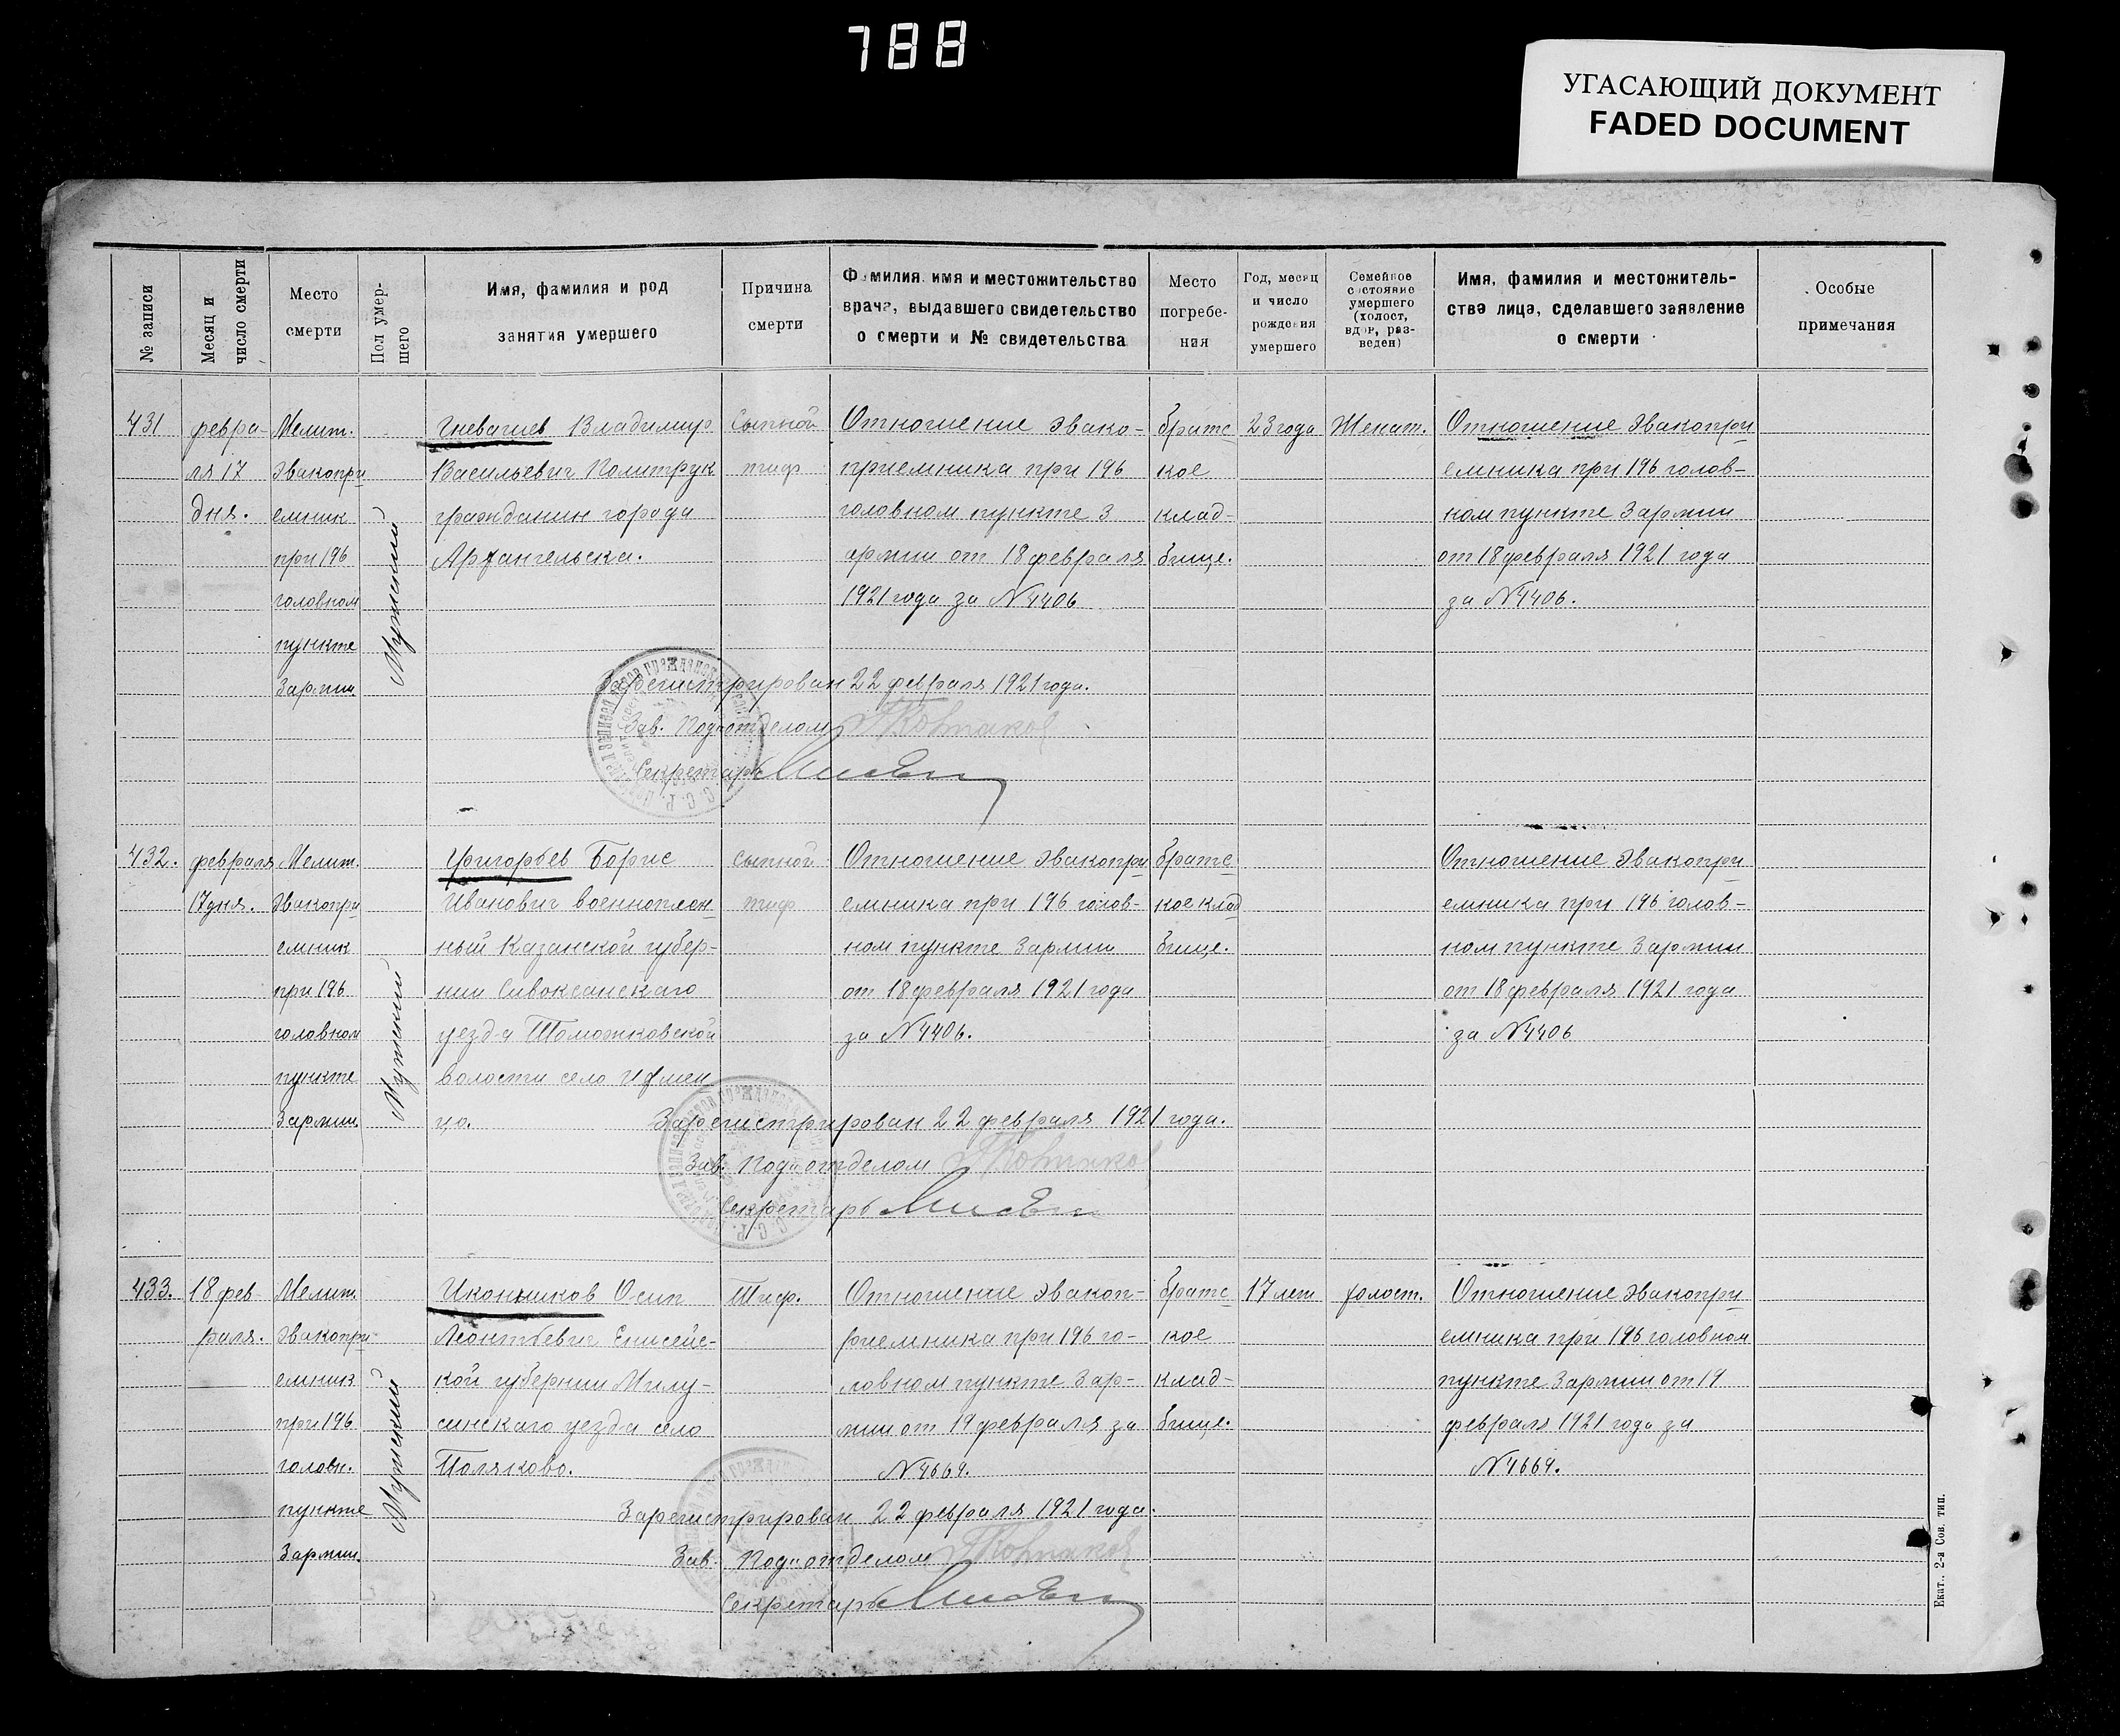 788
УГАСАЮЩИЙ ДОКУМЕНТ
FADED DOCUMENT
№ записи
Месяц и
число смерти
Место
смерти
Пол умер-
шего
Имя, фамилия и род
занятия умершего
Причина
смерти
Фамилия, имя и местожительство
врача, выдавшего свидетельство
о смерти и № свидетельства
Место
погребе-
ния
Год, месяц
и число
рождения
умершего
Семейное
состояние
умершего
(холост,
вдов, раз-
веден)
Имя, фамилия и местожитель-
ства лица, сделавшего заявление
о смерти
Особые
примечания
431
февра-
ля 17
дня.
Мелит.
Эвакопри
емник
при 196
головном
пункте
3 армии
Мужской
Гневашев Владимир
Васильевич Политрук
гражданин города
Архангельска.
Сыпной
тиф
Отношение эвако-
приемника при 196
головном пункте 3
армии от 18 февраля
1921 года за N 4406
братс
кое
клад-
бище.
23 года
Женат.
Отношение эвакопри
емника при 196 голов-
ном пункте 3 армии
от 18 февраля 1921 года
за N 4406.
Зарегистрирован 22 февраля 1921 года.
Зав. Подотделом
Секретарь
432.
февраля
17 дня.
Мелит.
Эвакопри
емник
при 196
головном
пункте
3 армии
Мужской
Григорьев Борис
Иванович военноплен-
ный Казанской губер-
нии
уезда
волости село
цо.
Сыпной
тиф
Отношение эвакопри
емника при 196 голов-
ном пункте 3 армии
от 18 февраля 1921 года
за N 4406.
братс
кое клад
бище.
Отношение эвакопри
емника при 196 голов-
ном пункте 3 армии
от 18 февраля 1921 года
за N 4406
Зарегистрирован 22 февраля 1921 года.
Зав. Подотделом
Секретарь
433.
18 фев-
раля.
Мелит.
Эвакопри
емник
при 196
головн.
пункте
3 армии.
Мужской
Иконников Осип
Леонтьевич Енисейс-
кой губернии Милу-
синскаго уезда село
Поляково.
Тиф.
Отношение эвакоп-
риемника при 196 го-
ловном пункте 3 ар-
мии от 19 февраля за
N 4664.
братс
кое
клад-
бище.
17 лет
холост.
Отношение эвакопри
емника при 196 головном
пункте 3 армии от 19
февраля 1921 года за
N 4664.
Зарегистрирован 22 февраля 1921 года.
Зав. Подотделом
Секретарь
Екат., 2-я Сов. тип.